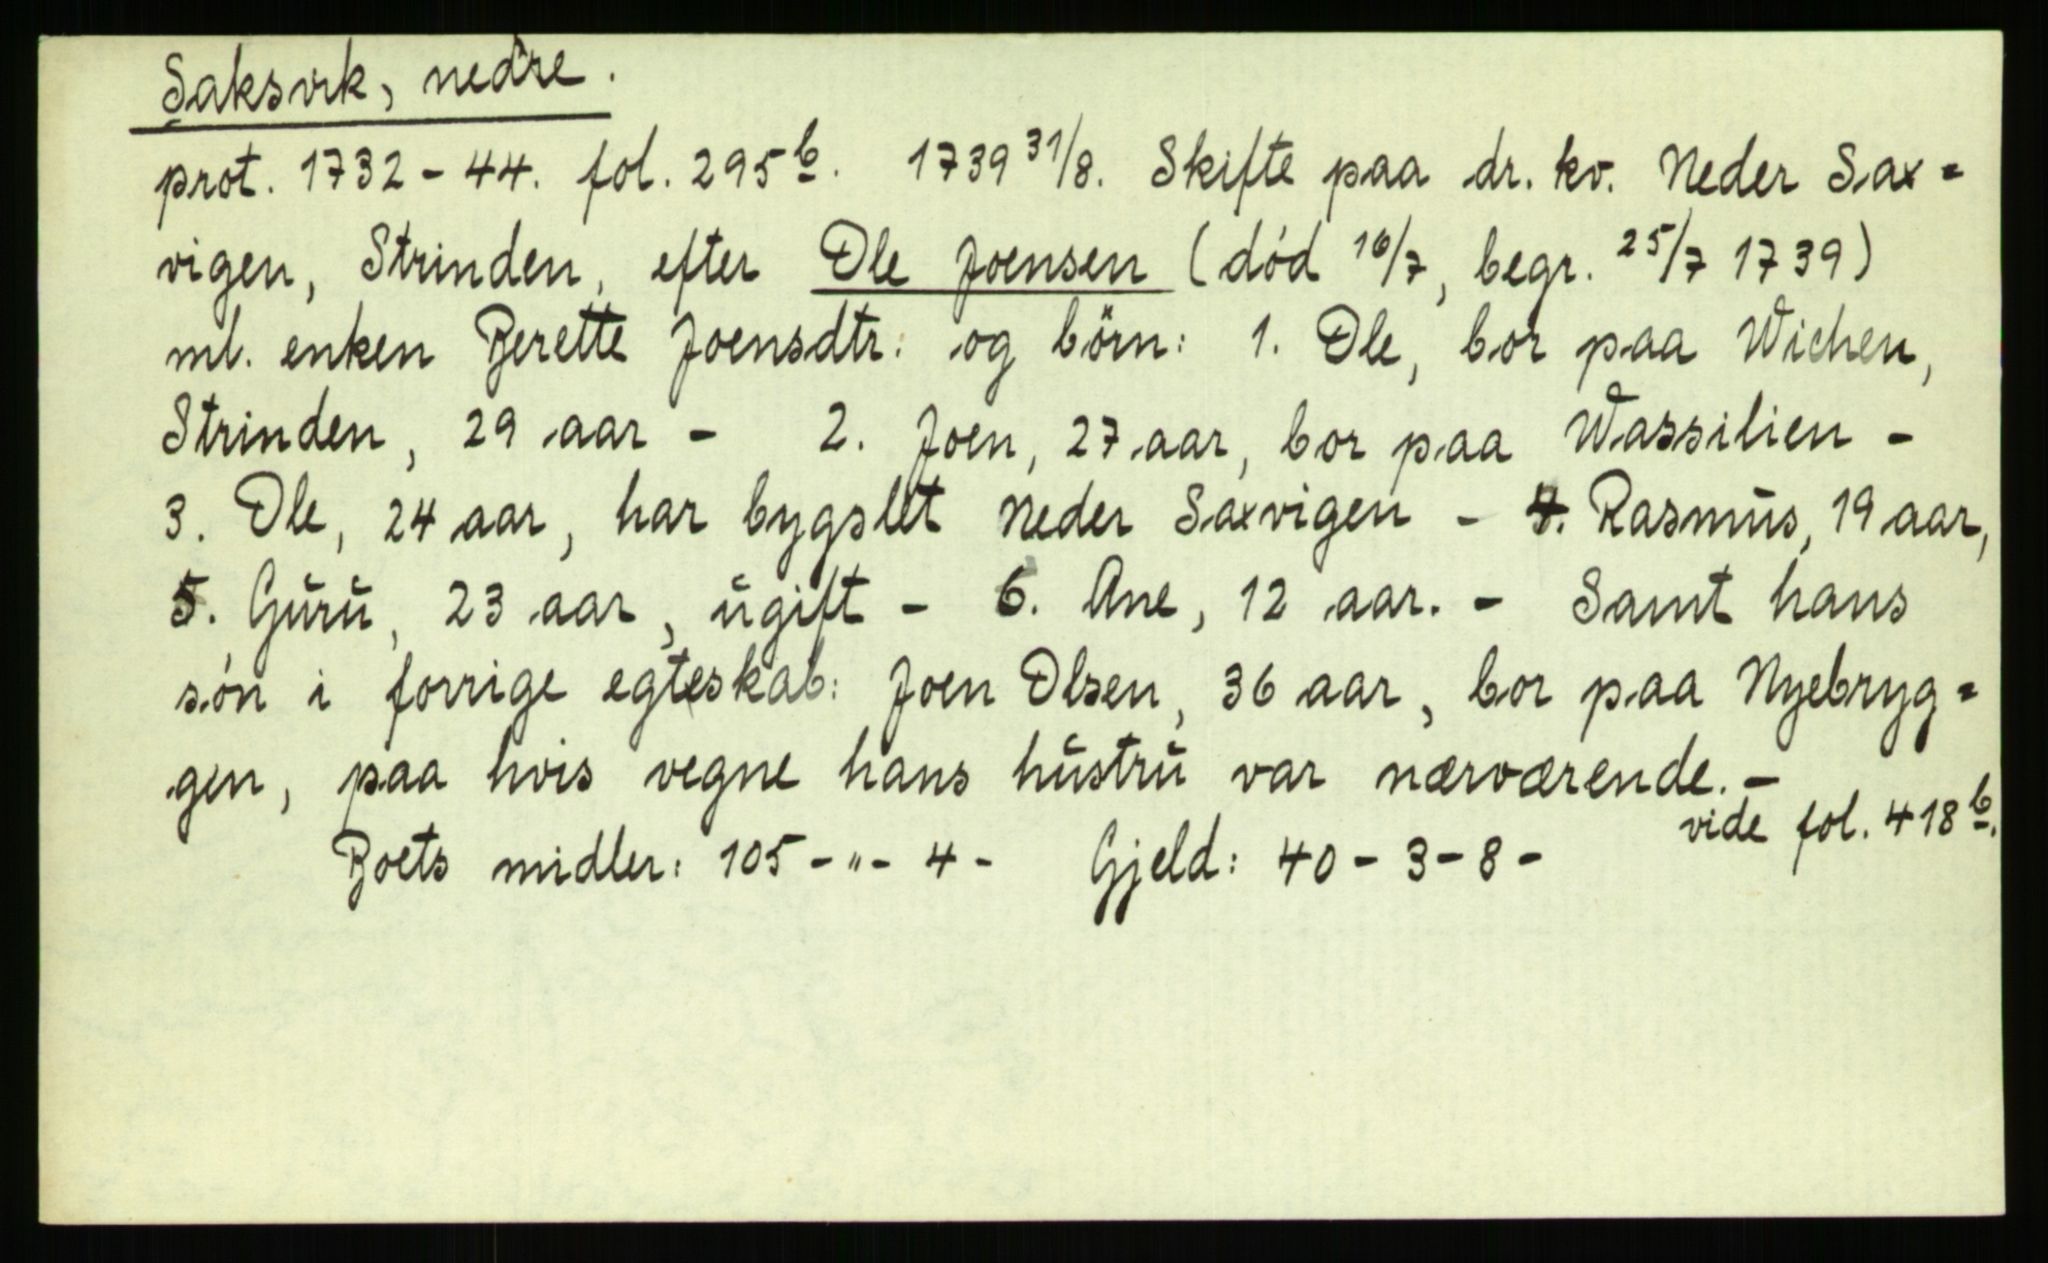 Saksvik, nedre.
prot. 1732-44. fol. 295b. 1739 31/8. Skifte paa dr. kv. Neder Sax=
vigen, Strinden, efter Ole Joensen (død 16/7, begr. 25/7 1739)
ml. enken Berette Joensdtr. og börn: 1. Ole, bor paa Wichen,
Strinden, 29 aar - 2. Joen, 27 aar, bor paa Wassilien -
3. Ole, 24 aar, har bygslet Neder Saxvigen - 4. Rasmus, 19 aar,
5. Guru, 23 aar, ugift - 6. Ane, 12 aar. - Samt hans
søn i forrige egteskab: Joen Olsen, 36 aar, bor paa Nyebryg=
gen, paa hvis vegne hans hustru var nærværende. -
vide fol. 418b.
Boets midler: 105 - " - 4 - Gjeld: 40 - 3 - 8 -